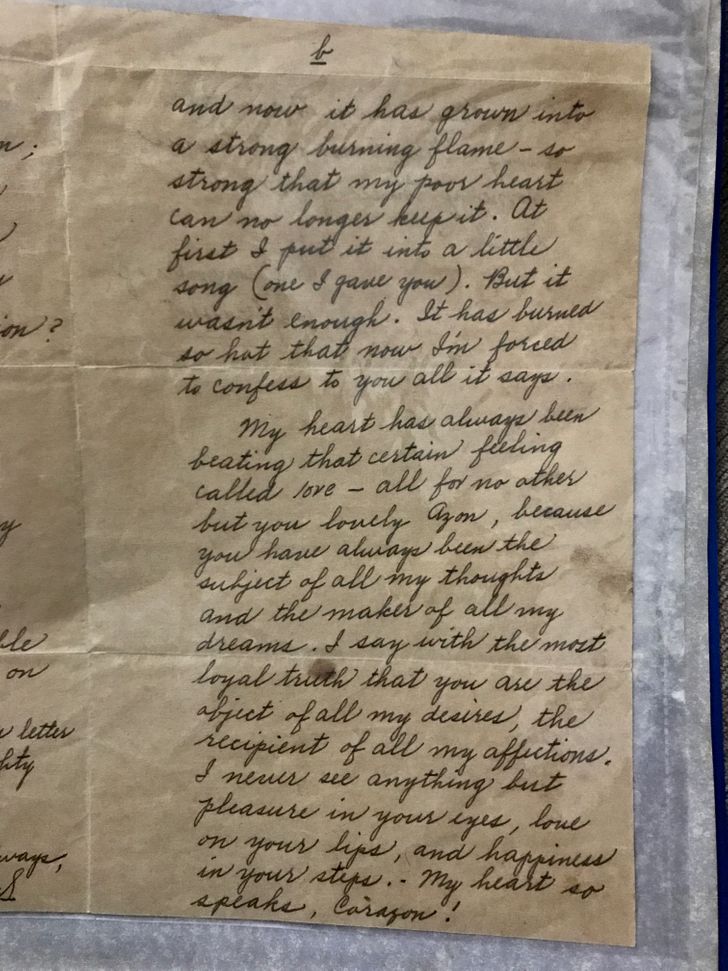 n;
ion?
y
ble
on
letter
hty
ways,
S
b
and now it has grown into
a strong burning flame – so
strong that my poor heart
can no longer keep it. At
first I put it into a little
song (one I gave you). But it
wasn't enough. It has burned
so hot that now I'm forced
to confess to you all it says.
My heart has always been
beating that certain feeling
called love – all for no other
but you lovely Azon, because
you have always been the
subject of all my thoughts
and the maker of all my
dreams. I say with the most
loyal truth that you are the
object of all my desires, the
recipient of all my affections.
I never see anything but
pleasure in your eyes, love
on your lips, and happiness
in your steps. - My heart so
speaks, Corazon!